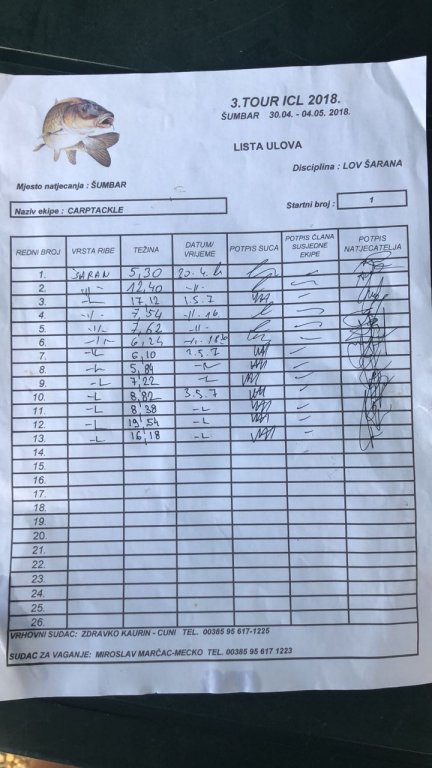 3.TOUR ICL 2018.
ŠUMBAR 30.04. - 04.05. 2018.
LISTA ULOVA
Disciplina : LOV ŠARANA
Mjesto natjecanja : ŠUMBAR
Naziv ekipe : CARPTACKLE
Startni broj : 1
REDNI BROJ VRSTA RIBE TEŽINA DATUM/ VRIJEME POTPIS SUCA POTPIS ČLANA SUSJEDNE EKIPE POTPIS NATJECATELJA
1. ŠARAN 5,30
2. -||- 12,40 -||-
3. -||- 17,12 1.5.7
4. -||- 7,54 -||- 16
5. -||- 7,62 -||-
6. -||- 6,24
7. -||- 6,10 2.5.7
8. -||- 5,84 -||-
9. -||- 7,22 -||-
10. -||- 8,82 3.5.7
11. -||- 8,38 -||-
12. -||- 19,54 -||-
13. -||- 16,18 -||-
14.
15.
16.
17.
18.
19.
20.
21.
22.
23.
24.
25.
26.
VRHOVNI SUDAC: ZDRAVKO KAURIN - CUNI TEL. 00385 95 617-1225
SUDAC ZA VAGANJE: MIROSLAV MARČAC-MECKO TEL. 00385 95 617 1223